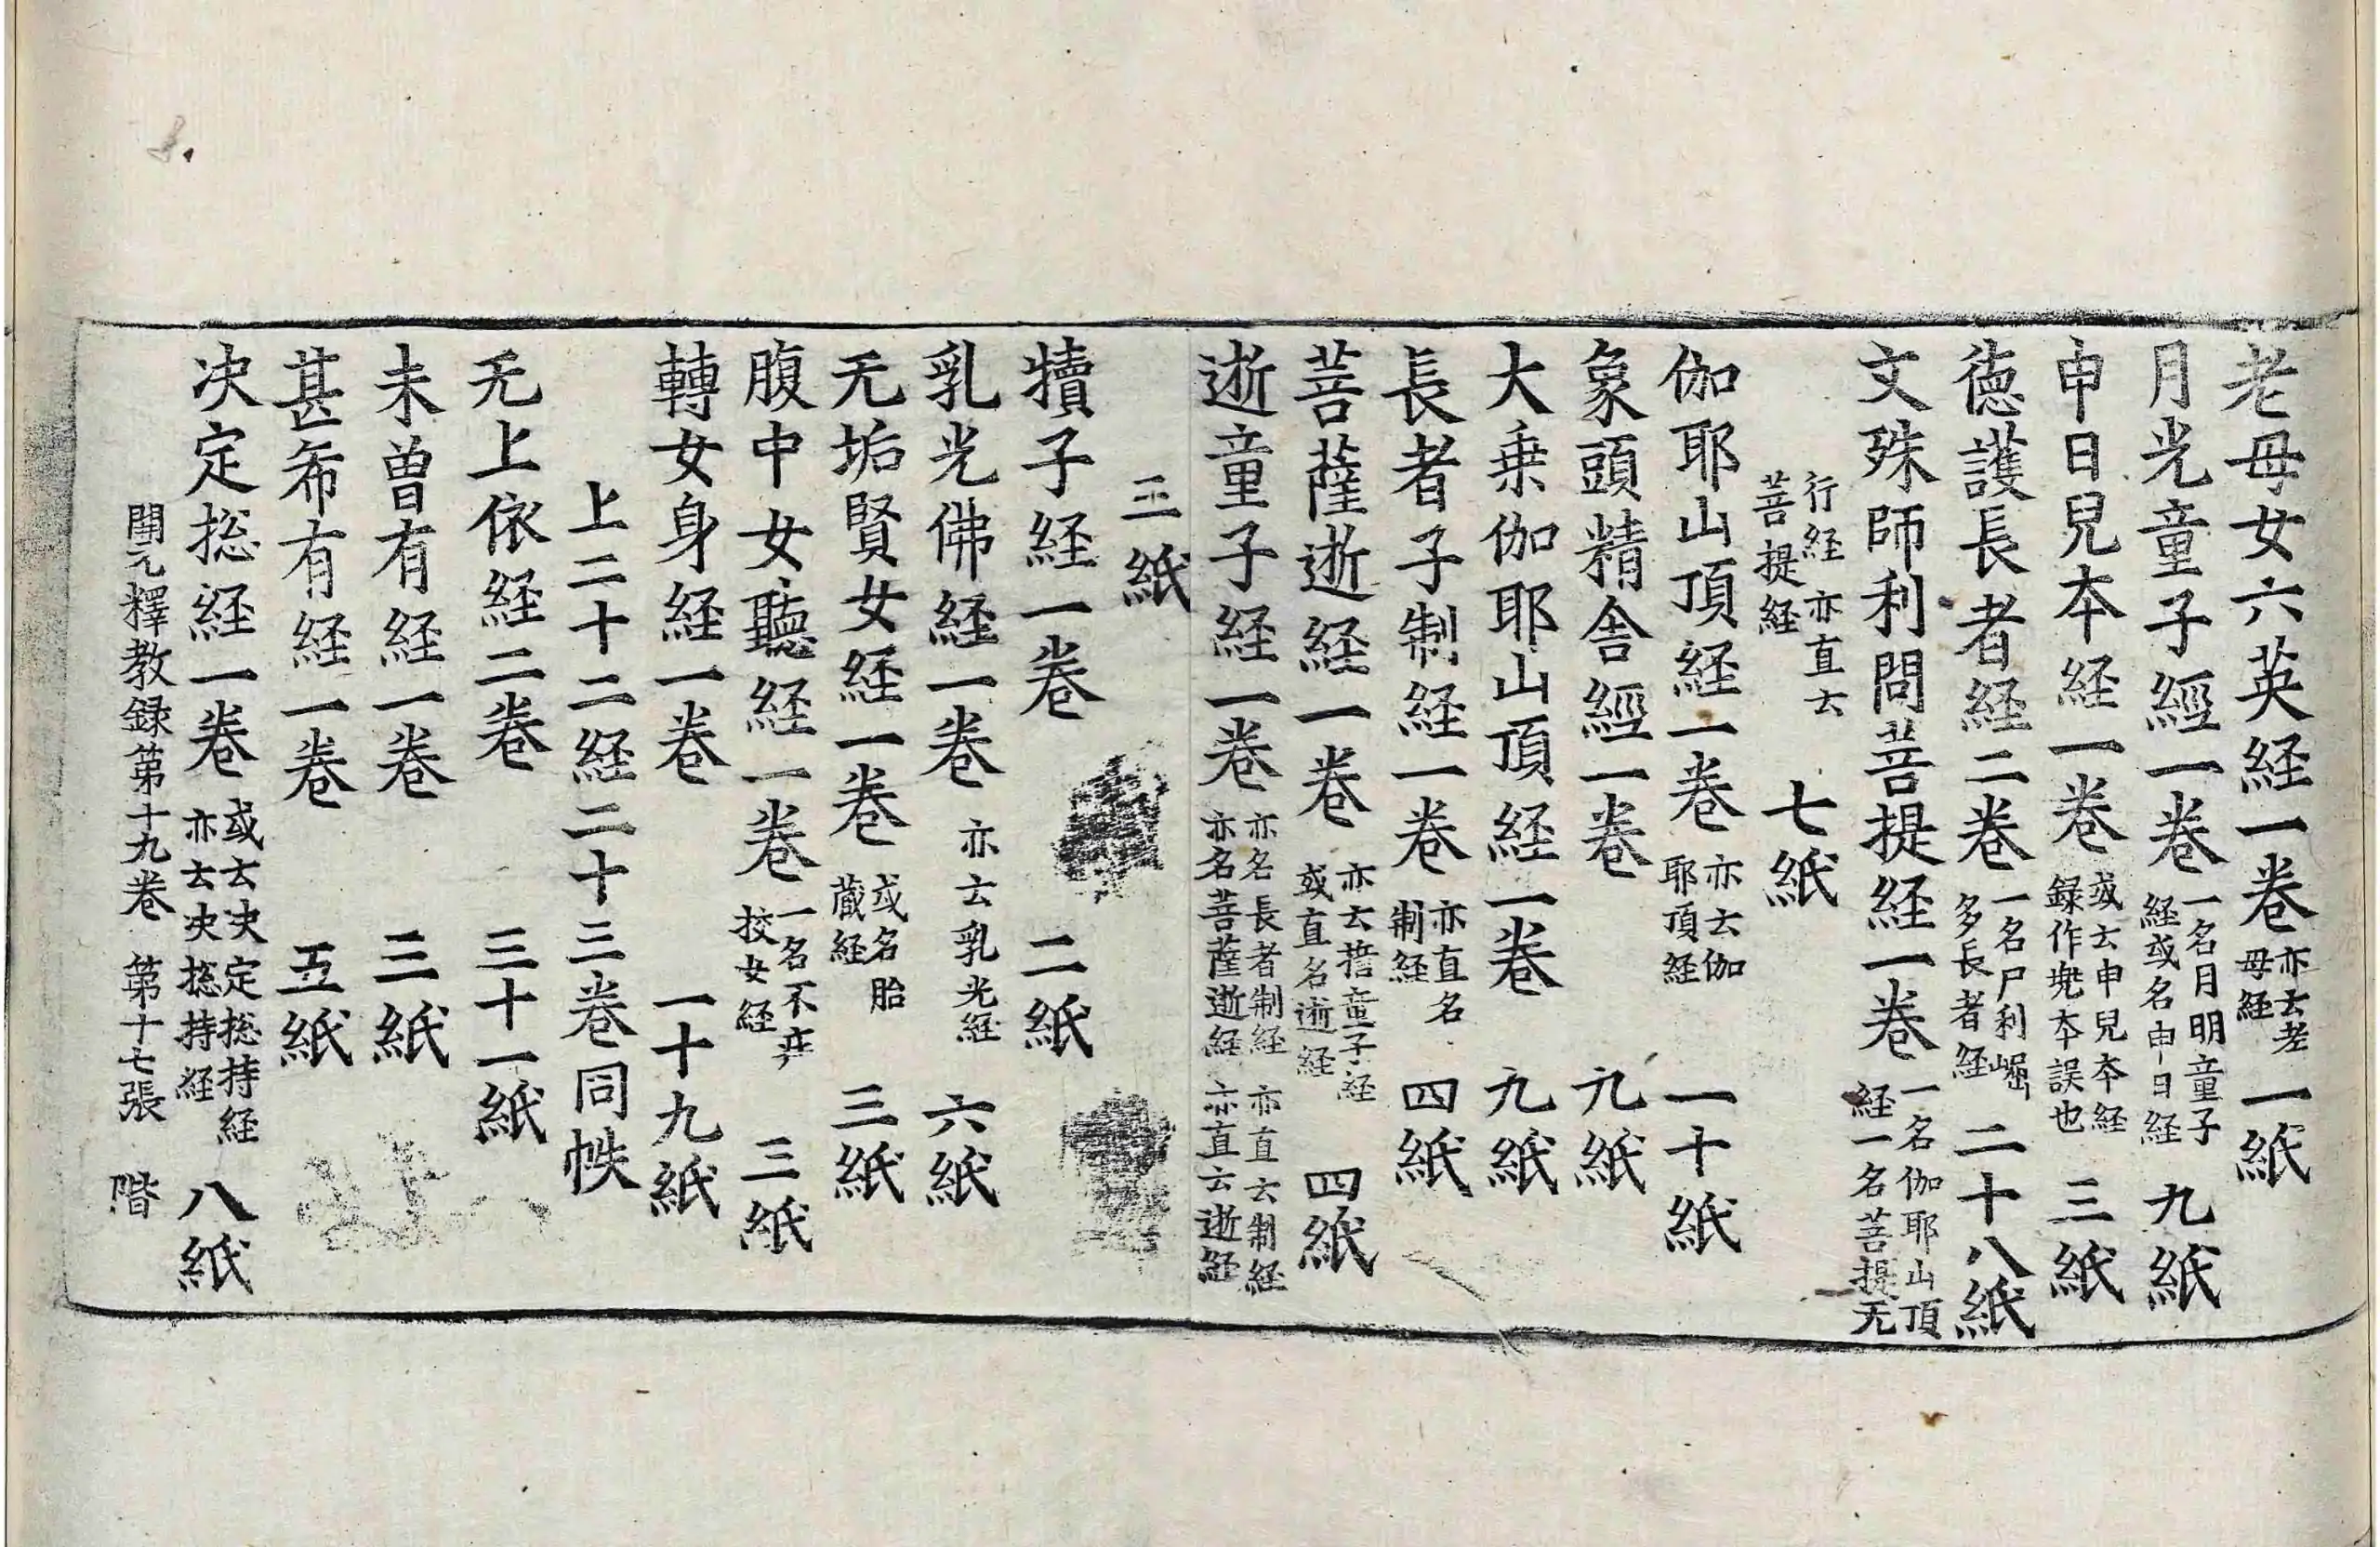 老母女六英経一卷 亦云老母経 一紙
月光童子經一卷 一名月明童子経或名申日経 九紙
申日兒本経一卷 或云申兒本経録作兠本誤也 三紙
德護長者経二卷 一名尸利崛多長者経 二十八紙
文殊師利問菩提経一卷 一名伽耶山頂経一名菩提无
行経亦直云菩提経 七紙
伽耶山頂経一卷 亦云伽耶頂経 一十紙
象頭精舎經一卷 九紙
大乗伽耶山頂経一卷 九紙
長者子制経一卷 亦直名制経 四紙
菩薩逝経一卷 亦云童子経或直名逝経 四紙
逝童子経一卷 亦名長者制経亦直云制経亦名菩薩逝経亦直云逝経
三紙
犢子経一卷 二紙
乳光佛経一卷 亦云乳光経 六紙
无垢賢女経一卷 或名胎蔵経 三紙
腹中女聽経一卷 一名不荘挍女経 三紙
轉女身経一卷 一十九紙
上二十二経二十三卷同帙
无上依経二卷 三十一紙
未曽有経一卷 三紙
甚希有経一卷 五紙
决定捴経一卷 或云决定捴持経亦云决捴持経 八紙
開元釋教録第十九卷 第十七張 階